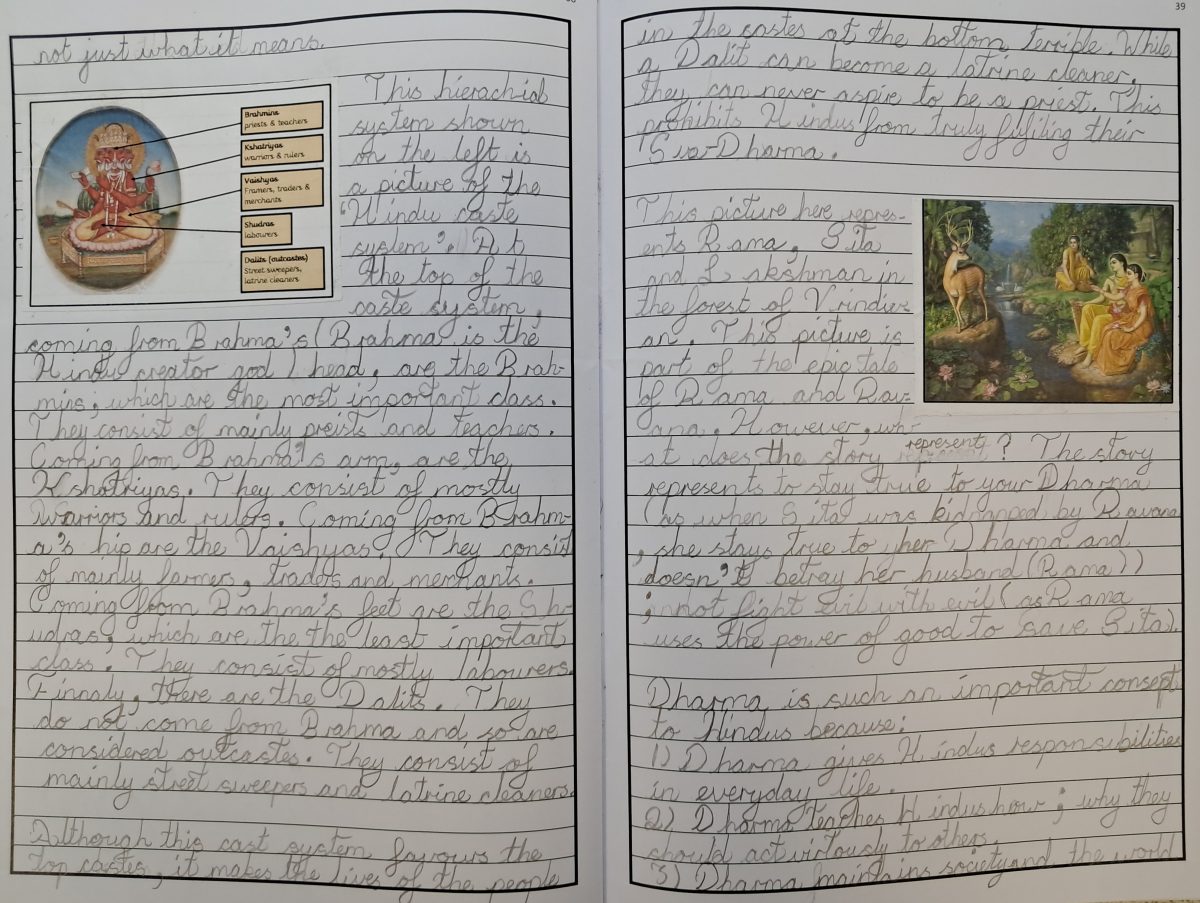 39
not just what it means.
Brahmins
priests & teachers
Kshatriyas
warriors & rulers
Vaishyas
Framers, traders &
merchants
Shudras
labourers
Dalits (outcastes)
Street sweepers,
latrine cleaners
This hierachial
system shown
on the left is
a picture of the
"Hindu caste
system". At
the top of the
caste system,
coming from Brahma's (Brahma is the
Hindu creator god) head, are the Brah-
mins, which are the most important class.
They consist of mainly preists and teachers.
Coming from Brahma's arm, are the
Kshatriyas. They consist of mostly
warriors and rulers. Coming from Brahm-
a's hip are the Vaishyas. They consist
of mainly farmers, traders and merchants.
Coming from Brahma's feet are the Sh-
udras, which are the the least important
class. They consist of mostly labourers.
Finnaly, there are the Dalits. They
do not come from Brahma and, so are
considered outcastes. They consist of
mainly street sweepers and latrine cleaners.
Although this cast system favours the
top castes, it makes the lives of the people
in the castes at the bottom terrible. While
a Dalit can become a latrine cleaner,
they can never aspire to be a priest. This
prohibits Hindus from truly fulfiling their
Sva-Dharma.
This picture here repres-
ents Rama, Sita
and Lakshman in
the forest of
an. This picture is
part of the epic tale
of Rama and Rav-
ana. However, wh-
at does the story represent? The story
represents to stay true to your Dharma
(as when Sita was kidnapped by Ravana
, she stays true to her Dharma and
doesn't betray her husband (Rama))
; not fight evil with evil (as Rama
uses the power of good to save Sita).
Dharma is such an important consept
to Hindus because:
1) Dharma gives Hindus responsibilities
in everyday life.
2) Dharma teaches Hindus how ; why they
should act virtously to others.
3) Dharma maintains society and the world